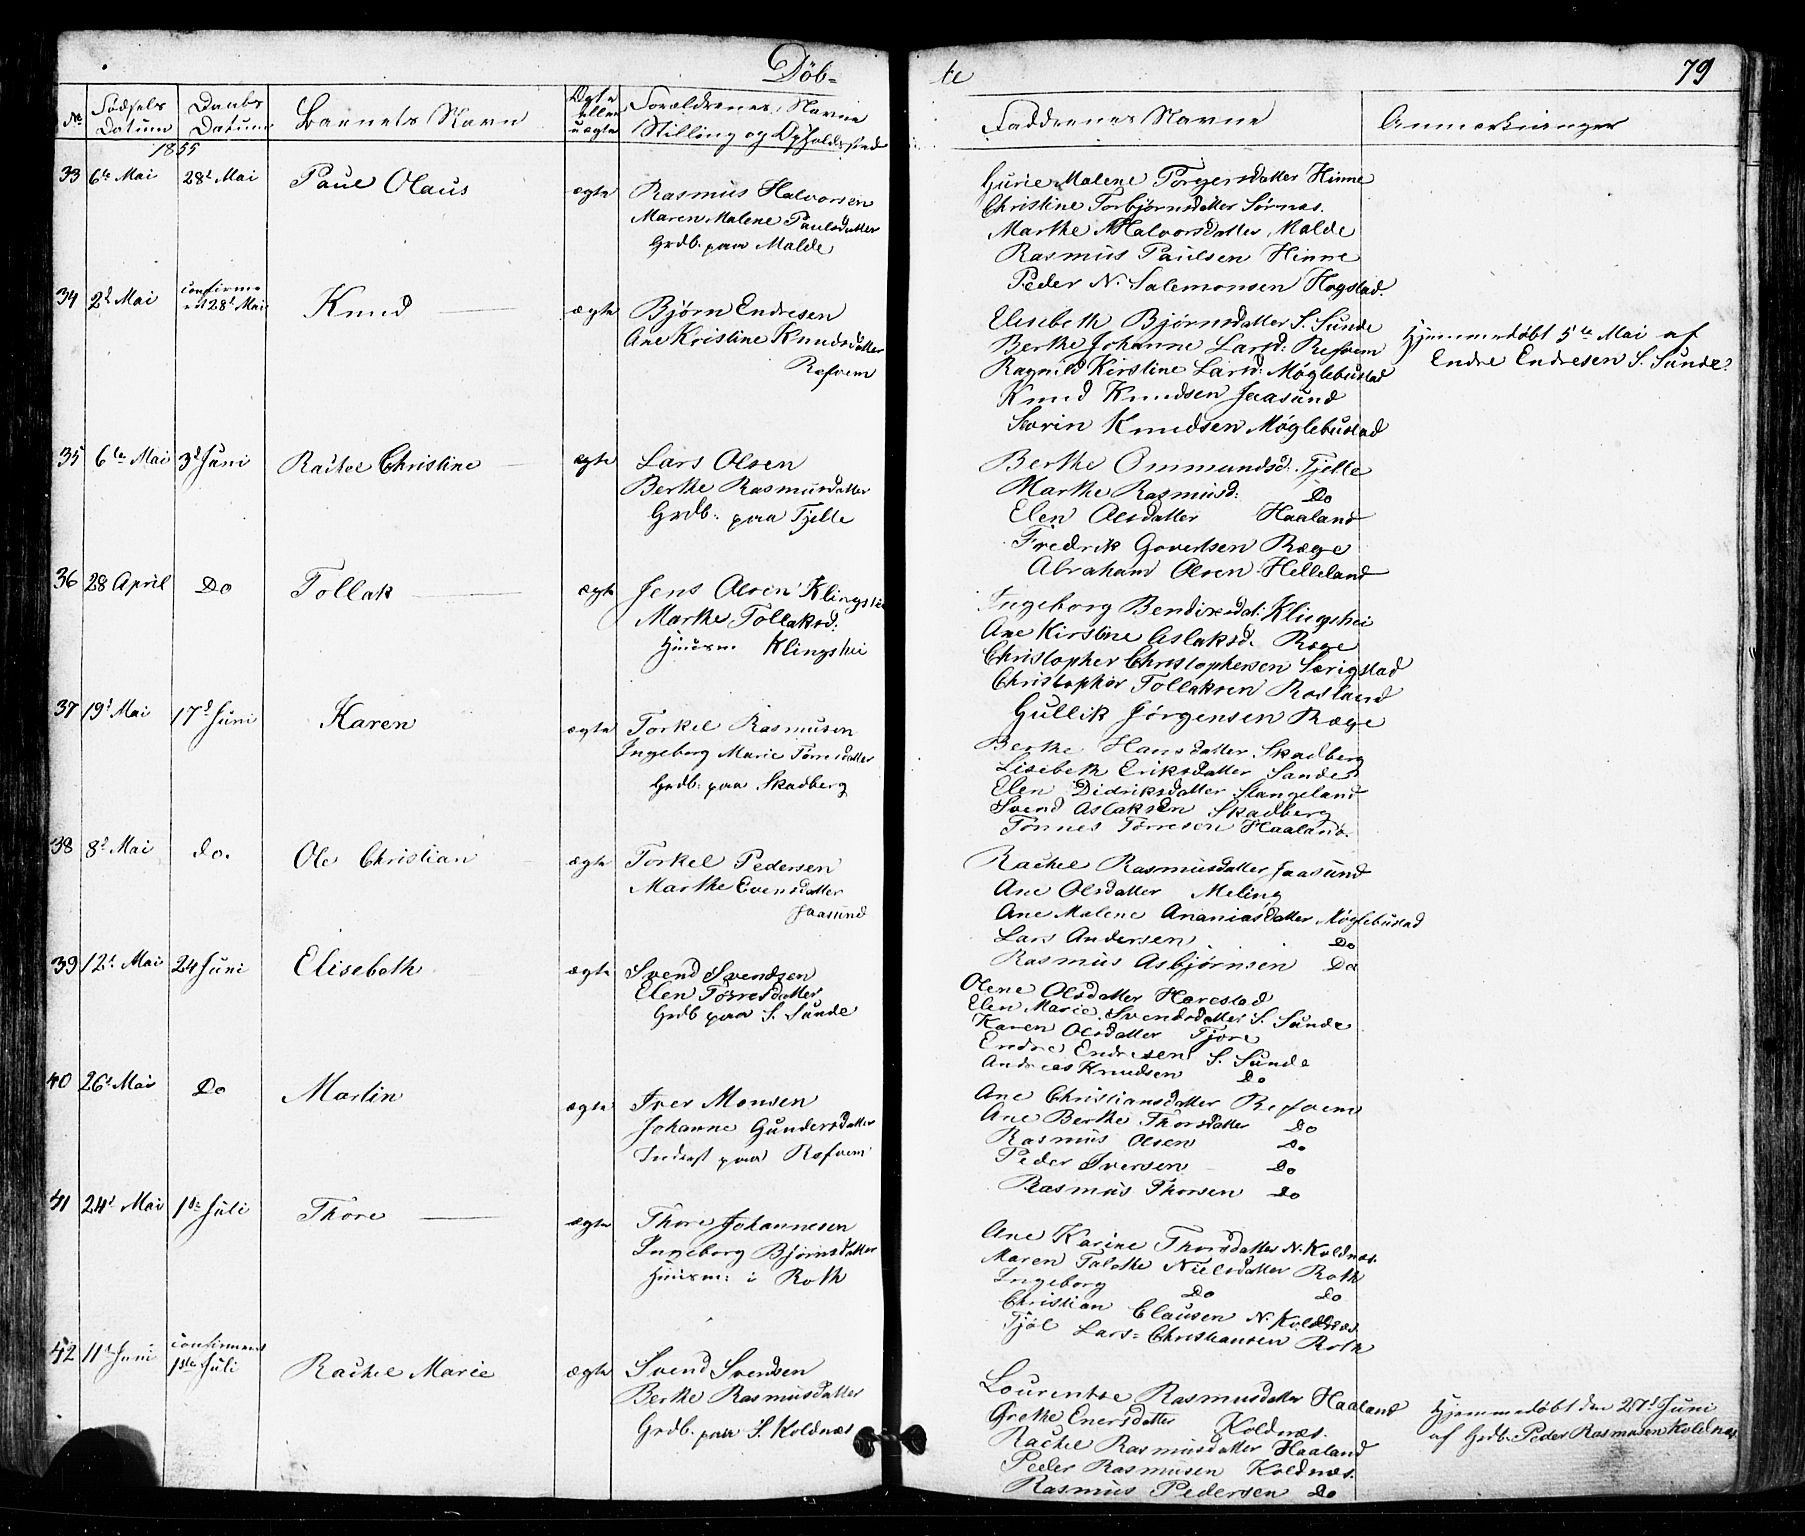 Döb-
te
79
No
Födsels Datum
Daabs Datum
Barnets Navn
Ægte eller uægte
Forældrenes Navne Stilling og Opholdssted
Faddernes Navne
Anmærkninger
1855
33 6te Mai 28d Mai Paul Olaus ægte
Rasmus Halvorsen
Maren Malene Paulsdatter
Grdb. paa Malde
Gurie Malene Torgersdatter Hinne
Christine Torbjørnsdatter Sørnæs.
Marthe Halvorsdatter Malde
Rasmus Paulsen Hinne
Peder N. Salemonsen Hogstad.
34 2d Mai confirmeret 28d Mai Knud ægte
Bjørn Endresen
Ane Kristine Knudsdatter
Ræfvem
Elisebeth Bjørnsdatter S. Sunde
Berthe Johanne Larsd: Refvem
Ragnild Kirstine Larsd: Møglebustad
Knud Knudsen Jaasund
Sørin Knudsen Møglebustad
Hjemmedøbt 5te Mai af
Endre Endresen S. Sunde.
35 6te Mai 3d Juni Rachel Christine ægte
Lars Olsen
Berthe Rasmusdatter
Grdb. paa Tjelle
Berthe Ommundsd. Tjelle
Marthe Rasmusd: Do
Elen Olsdatter Haaland
Fredrik Govertsen Ræge
Abraham Olsen Helleland
36 28 April Do Tollak ægte
Jens Olsen Klingshei
Marthe Tollaksd:
Huusm. Klingshei
Ingeborg Bendixsdat: Klingshei
Ane Kirstine Aslaksd. Ræge
Christopher Christophersen Sørigstad
Christopher Tollaksen Rosland
Gullik Jørgensen Ræge
37 19d Mai 17d Juni Karen ægte
Torkel Rasmusen
Ingeborg Marie Tørresdatter
Grdb. paa Skadberg
Berthe Hansdatter Skadberg
Lisebeth Eriksdatter Sande
Elen Didriksdatter Stangeland
Svend Aslaksen Skadberg
Tønnes Tørresen Haaland.
38 8d Mai do. Ole Christian ægte
Torkel Pedersen
Marthe Evensdatter
Jaasund
Rachel Rasmusdatter Jaasund
Ane Olsdatter Meling
Ane Malene Ananiasdatter Møglebustad
Lars Andersen Do
Rasmus Asbjørnsen Do
39 12d Mai 24 Juni Elisebeth ægte
Svend Svendsen
Elen Tørresdatter
Grdb paa S. Sunde
Olene Olsdatter Harestad
Elen Marie Svendsdatter S. Sunde
Karen Olsdatter Tjore
Endre Endresen S. Sunde
Andreas Knudsen Do
40 26d Mai Do Martin ægte
Iver Monsen
Johanne Gundersdatter
Inderst paa Ræfvem
Ane Christiansdatter Refvem
Ane Berthe Thorsdatter Do
Rasmus Olsen Do
Peder Iversen Do
Rasmus Thorsen Do
41 24d Mai 1ste Juli Thore ægte
Thore Johannesen
Ingeborg Bjørnsdatter
Huusm: i Roth
Ane Karine Thorsdatter N. Koldnæs.
Maren Talette Nielsdatter Roth
Ingeborg Do Do
Christian Clausen N. Koldnæs.
Tjøl Lars-Christiansen Roth
42 11te Juni confirmeret 1ste Juli Rachel Marie ægte
Svend Svendsen
Berthe Rasmusdatter
Grdb. paa S. Koldnæs
Lourentse Rasmusdatter Haaland
Grethe Enersdatter Koldnæs.
Rachel Rasmusdatter Haaland
Peder Rasmusen Koldnæs.
Rasmus Pedersen Do
Hjemmedøbt den 27d Juni
af Grdb. Peder Rasmusen Koldnæs